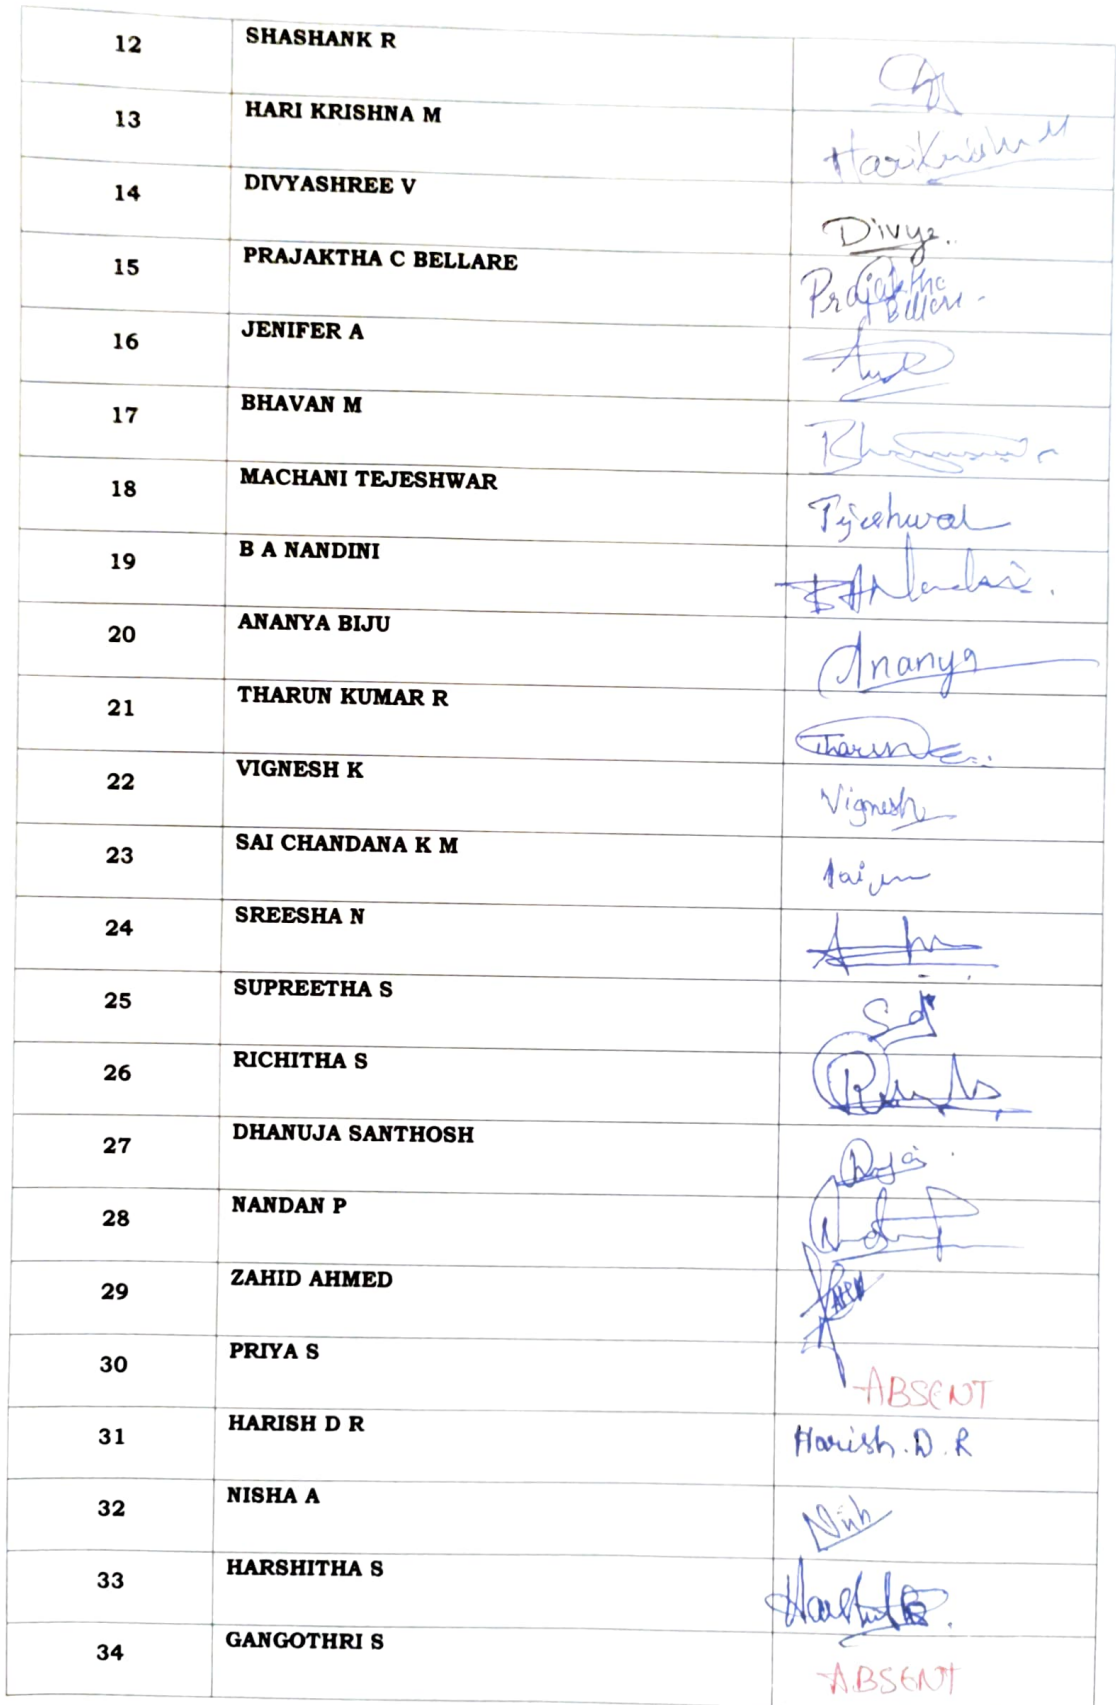 12 SHASHANK R
13 HARI KRISHNA M HariKrishna M
14 DIVYASHREE V Divya.
15 PRAJAKTHA C BELLARE Prajaktha
Bellare
16 JENIFER A
17 BHAVAN M
18 MACHANI TEJESHWAR Tejeshwar
19 B A NANDINI B A Nandini
20 ANANYA BIJU Ananya
21 THARUN KUMAR R Tharun
22 VIGNESH K Vignesh
23 SAI CHANDANA K M
24 SREESHA N
25 SUPREETHA S
26 RICHITHA S
27 DHANUJA SANTHOSH
28 NANDAN P
29 ZAHID AHMED
30 PRIYA S ABSENT
31 HARISH D R Harish. D. R
32 NISHA A
33 HARSHITHA S
34 GANGOTHRI S ABSENT